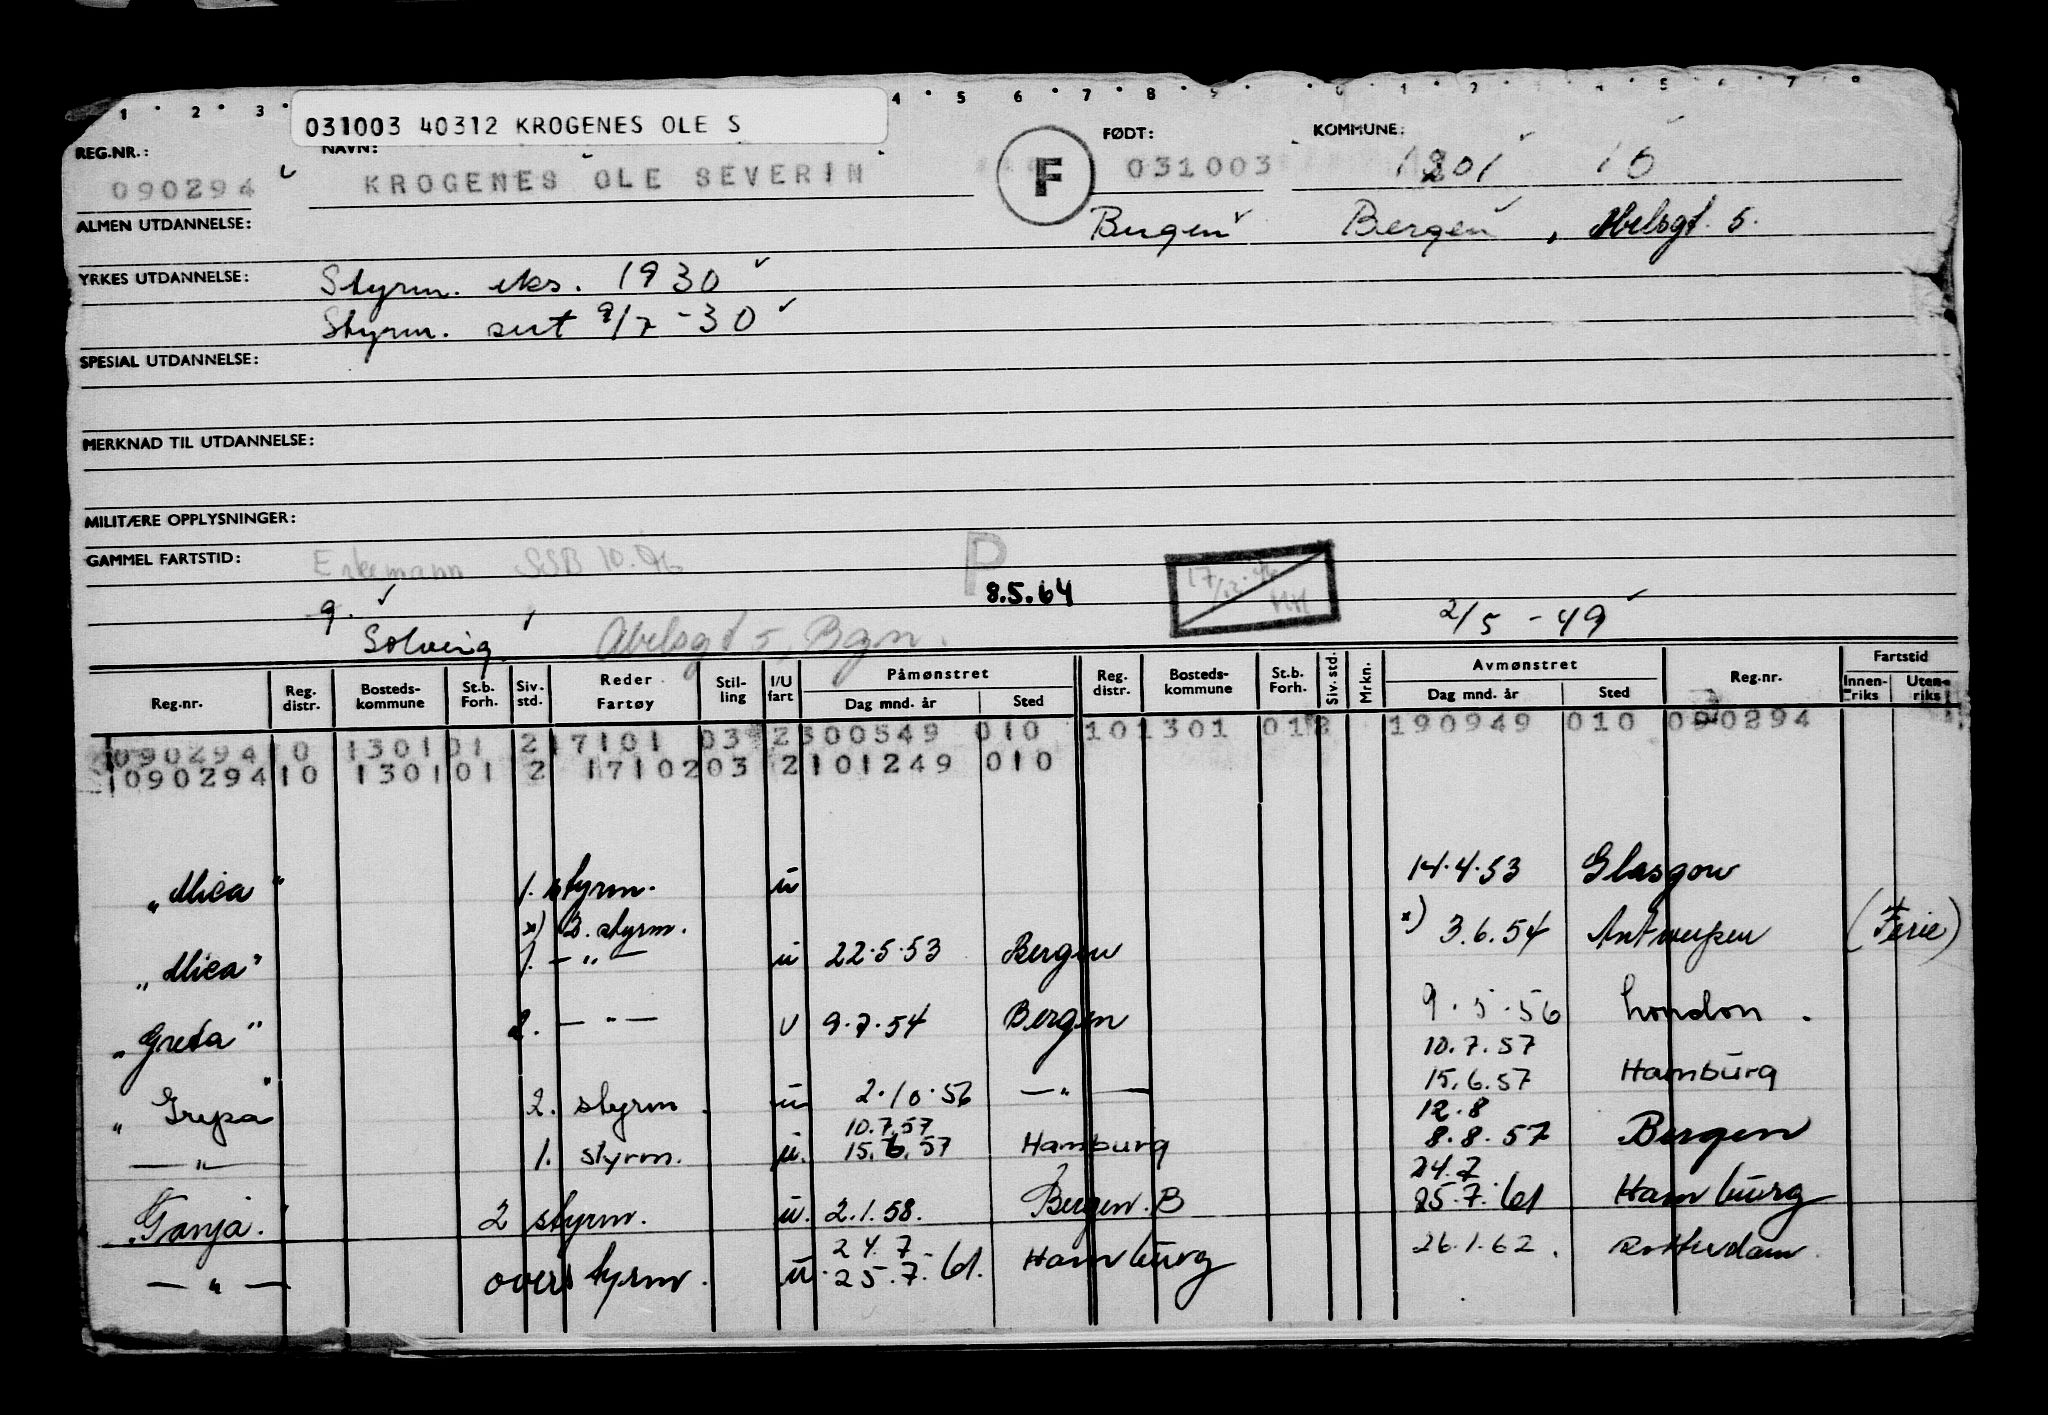 1 2 3 4 5 6 7 8 9 0 1 2 4 5 6 7 8
031003 40312 KROGENES OLE S
REG.NR.: NAVN: FØDT: KOMMUNE:
090294 KROGENES OLE SEVERIN F 031003 1301 10
ALMEN UTDANNELSE: Bergen Bergen, Abelsgt. 5.
YRKES UTDANNELSE: Styrm. eks. 1930
Styrm. sert 9/7-30
SPESIAL UTDANNELSE:
MERKNAD TIL UTDANNELSE:
MILITÆRE OPPLYSNINGER:
GAMMEL FARTSTID: Enkemann SSB 10.96 P
8.5.64 17/12.94
g. 2/5-49
Solveig Abelsgt 5, Bgn.
Reg.nr. Reg. distr. Bosteds-kommune St.b. Forh. Siv. std. Reder Fartøy Stil-ling I/U fart Påmønstret Dag mnd. år Sted Reg. distr. Bosteds-kommune St.b. Forh. Siv. std. Mrkn. Avmønstret Dag mnd. år Sted Reg.nr. Fartstid Innen-riks Uten-riks
090294 10 1301 01 2 17101 03 2 300549 010 10 1301 01 2 190949 010 090294
090294 10 1301 01 2 17102 03 2 101249 010
"Mica" 1. styrm. u 14.4.53 Glasgow
x) 3. styrm.
"Mica" 1. -"- u 22.5.53 Bergen x) 3.6.54 Antwerpen (Ferie)
"Greta" 2. -"- u 9.7.54 Bergen 9.5.56 London.
10.7.57
"Grepa" 2. styrm. u 2.10.56 -"- 15.6.57 Hamburg
10.7.57 12.8
-"- 1. styrm. u. 15.6.57 Hamburg 8.8.57 Bergen
24.7
"Tanja." 2 styrm. u. 2.1.58. Bergen. B 25.7.61 Hamburg
24.7
-"- overstyrm. u. 25.7.61. Hamburg 26.1.62. Rotterdam.